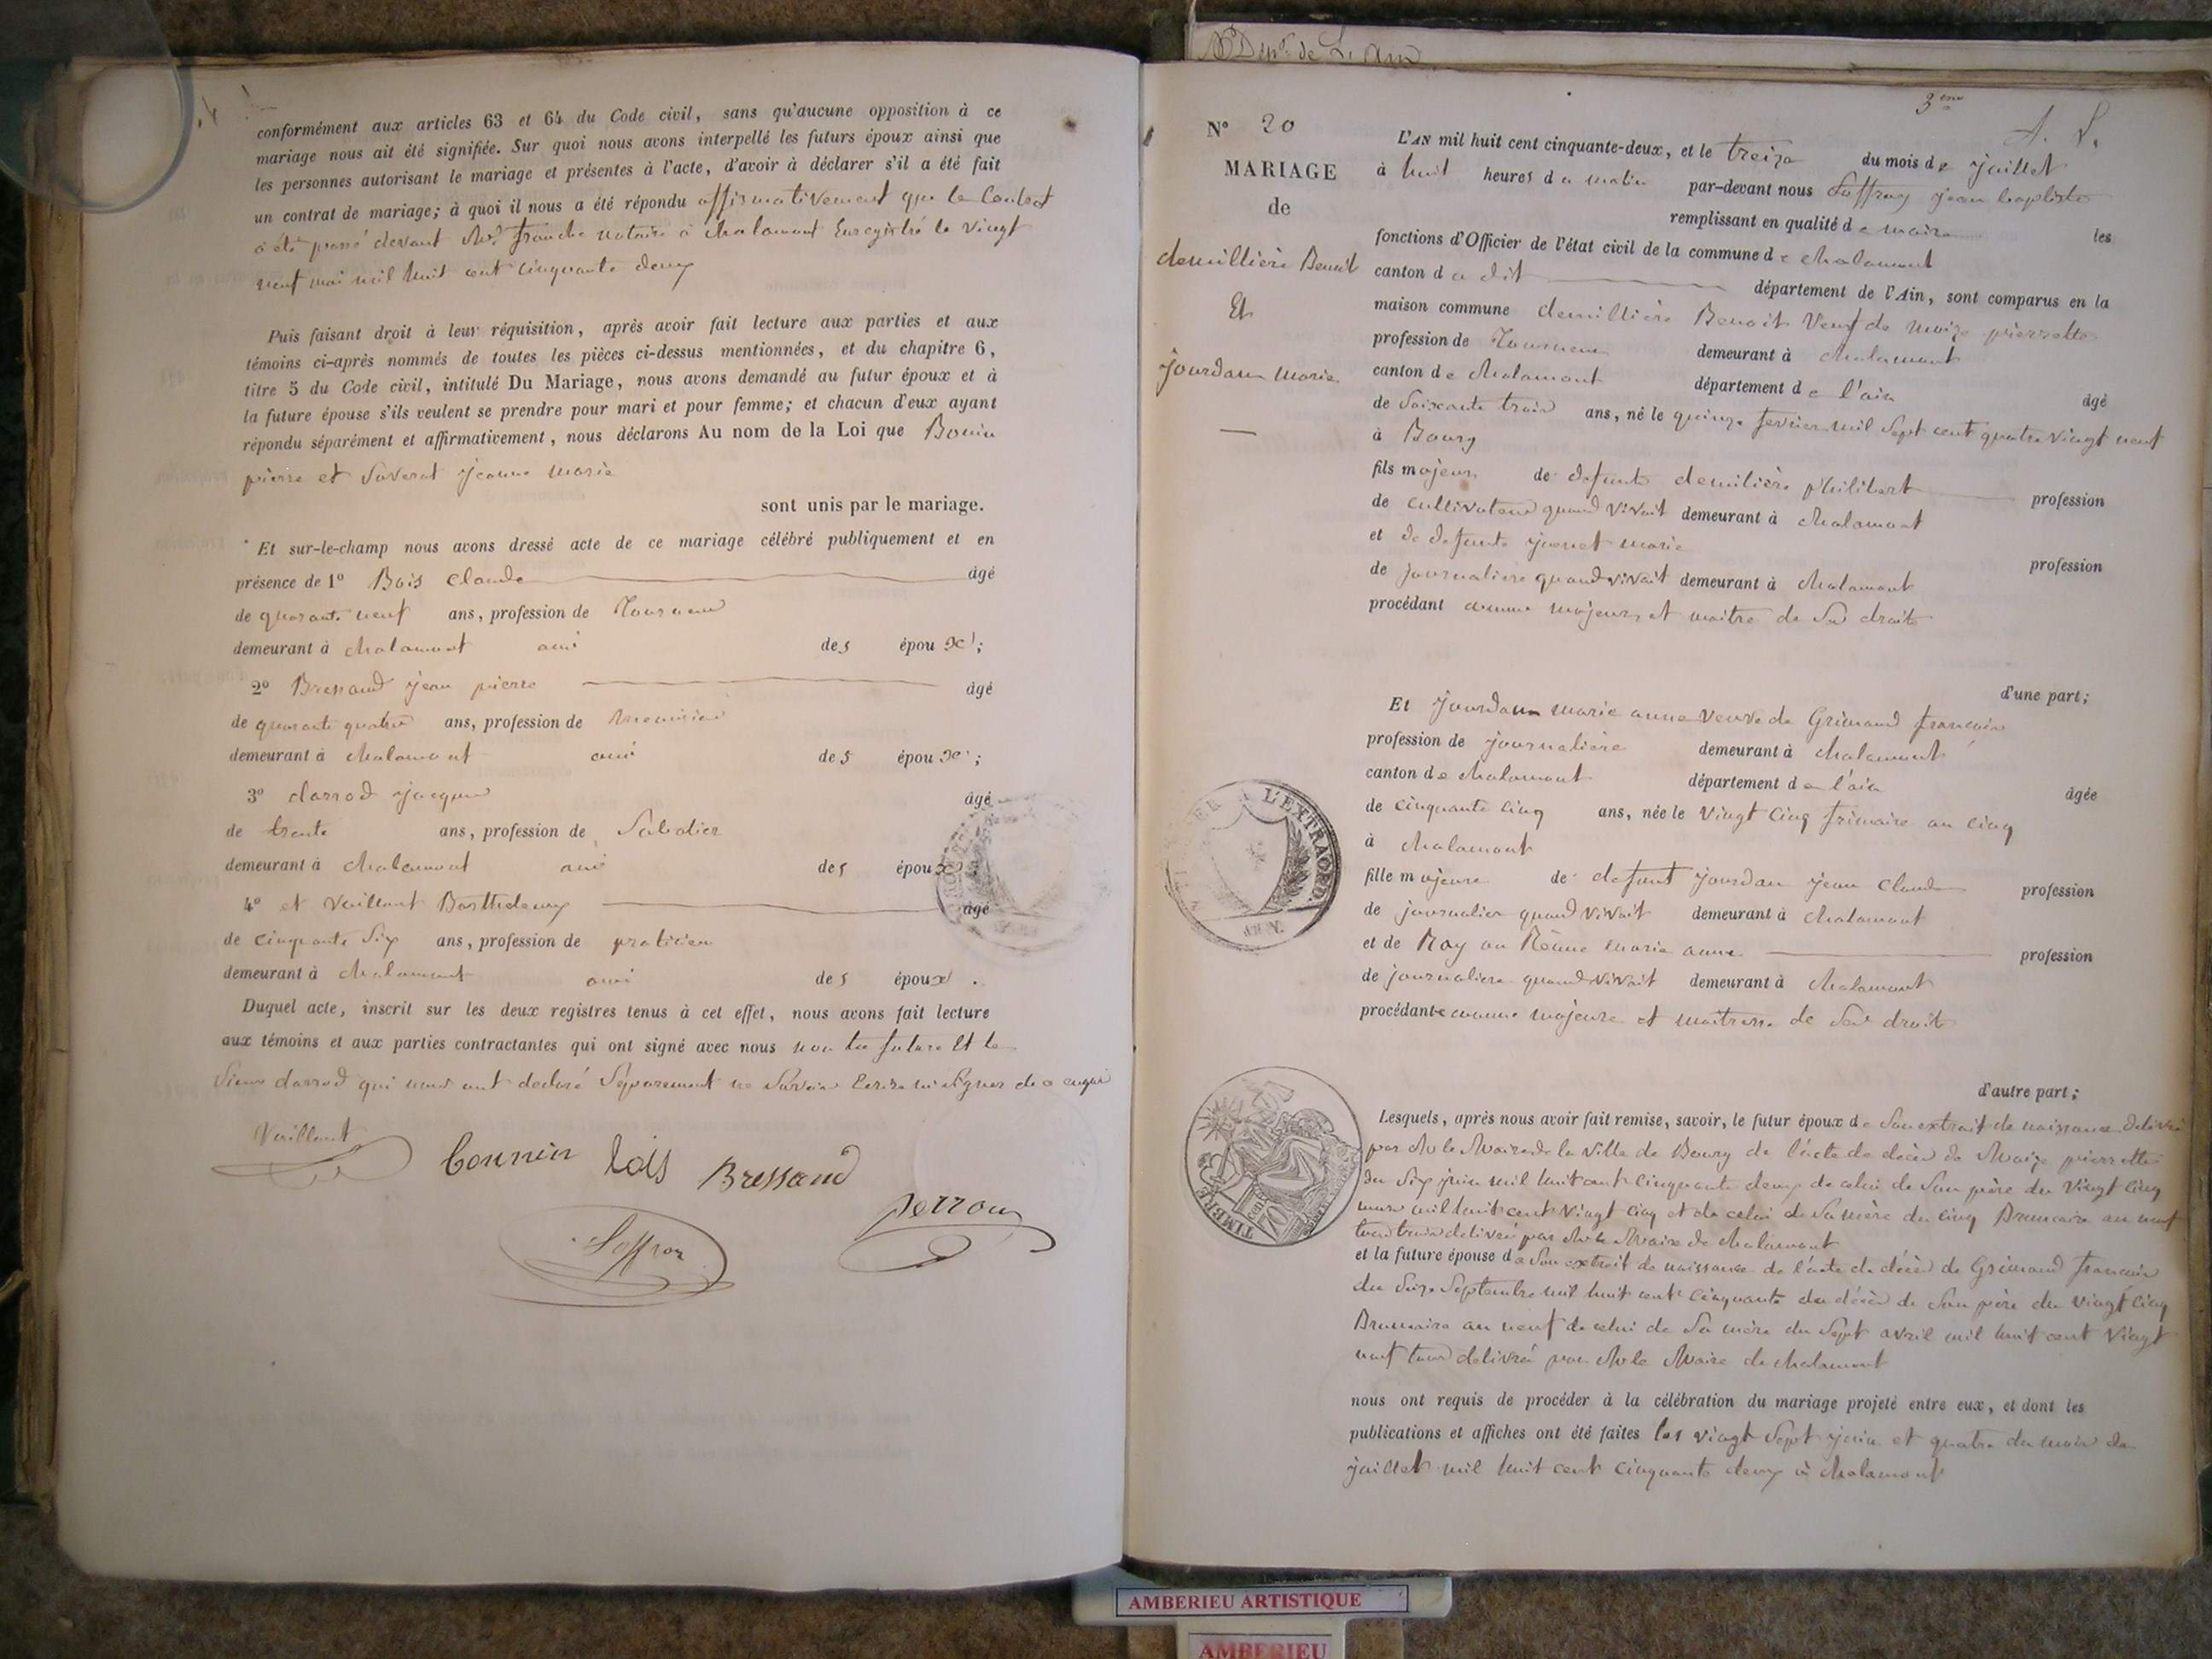 conformément aux articles 63 et 64 du Code civil, sans qu'aucune opposition à ce
mariage nous ait été signifiée. Sur quoi nous avons interpellé les futurs époux ainsi que
les personnes autorisant le mariage et présentes à l'acte, d'avoir à déclarer s'il a été fait
un contrat de mariage; à quoi il nous a été répondu affirmativement que le Contrat
a été passé devant Me. franche notaire à chalamont Enregistré le vingt
neuf mai mil huit cent cinquante deux
Puis faisant droit à leur réquisition, après avoir fait lecture aux parties et aux
témoins ci-après nommés de toutes les pièces ci-dessus mentionnées, et du chapitre 6,
titre 5 du Code civil, intitulé Du Mariage, nous avons demandé au futur époux et à
la future épouse s'ils veulent se prendre pour mari et pour femme; et chacun d'eux ayant
répondu séparément et affirmativement, nous déclarons Au nom de la Loi que Bonin
pierre et Saverat jeanne marie
sont unis par le mariage.
Et sur-le-champ nous avons dressé acte de ce mariage célébré publiquement et en
présence de 1º Bois Claude âgé
de quarante neuf ans, profession de Tourneur
demeurant à chalamont ami des époux;
2º Bressand jean pierre âgé
de quarante quatre ans, profession de menuisier
demeurant à chalamont ami des époux;
3º darrod jacques âgé
de trente ans, profession de Sabotier
demeurant à chalamont ami des époux
4º et Vaillant Barthelemy âgé
de cinquante Six ans, profession de praticien
demeurant à chalamont ami des époux.
Duquel acte, inscrit sur les deux registres tenus à cet effet, nous avons fait lecture
aux témoins et aux parties contractantes qui ont signé avec nous non la future Et le
Sieur darrod qui nous ont declaré Séparement ne Savoir Ecrire ni Signer de ce enquis
Vaillant
Bonnin
Bois
Bressand
perron
Soffray
Dépt. de L'Ain
3eme
Nº 20
MARIAGE
de
demillière Benoit
Et
jourdan marie
L'AN mil huit cent cinquante-deux, et le treize du mois de juillet
à huit heures du matin par-devant nous Soffray jean baptiste
remplissant en qualité de maire les
fonctions d'Officier de l'état civil de la commune de chalamont
canton du dit département de l'Ain, sont comparus en la
maison commune demillière Benoit Veuf de moize pierrette
profession de Tourneur demeurant à chalamont
canton de chalamont département de l'ain âgé
de Soixante trois ans, né le quinze fevrier mil Sept cent quatre vingt neuf
à Bourg
fils majeur de defunt demilière philibert profession
de cultivateur quand vivait demeurant à chalamont
et de defunte marie
profession
de journaliere quand vivait demeurant à chalamont
procédant comme majeur et maitre de Ses droits
d'une part;
Et jourdan marie anne veuve de Grimand françois
profession de journalière demeurant à chalamont
canton de chalamont département de l'ain âgée
de cinquante cinq ans, née le vingt cinq frimaire an cinq
à chalamont
fille majeure de defunt jourdan jean claude profession
de journalier quand vivait demeurant à chalamont
et de Ray ou Réaume marie anne profession
de journaliere quand vivait demeurant à chalamont
procédante comme majeure et maitresse de Ses droits
d'autre part;
Lesquels, après nous avoir fait remise, savoir, le futur époux de Son extrait de naissance delivré
par Mr le Maire de la Ville de Bourg de l'acte de décès de Moize pierrette
du Six juin mil huit cent cinquante deux de celui de Son père du Vingt Cinq
mars mil huit cent vingt cinq et de celui de Sa mère du cinq Brumaire an neuf
tous trois delivrés par Mr le Maire de chalamont
et la future épouse de Son extrait de naissance de l'acte de décès de Grimand françois
du Seize Septembre mil huit cent cinquante du décès de Son père du vingt cinq
Brumaire an neuf de celui de Sa mère du Sept avril mil huit cent Vingt
neuf tous delivrés par Mr le Maire de chalamont
nous ont requis de procéder à la célébration du mariage projeté entre eux, et dont les
publications et affiches ont été faites les vingt Sept juin et quatre du mois de
juillet mil huit cent cinquante deux à chalamont
A L'EXTRAORD.
TIMBRE
AMBERIEU ARTISTIQUE
AMBERIEU